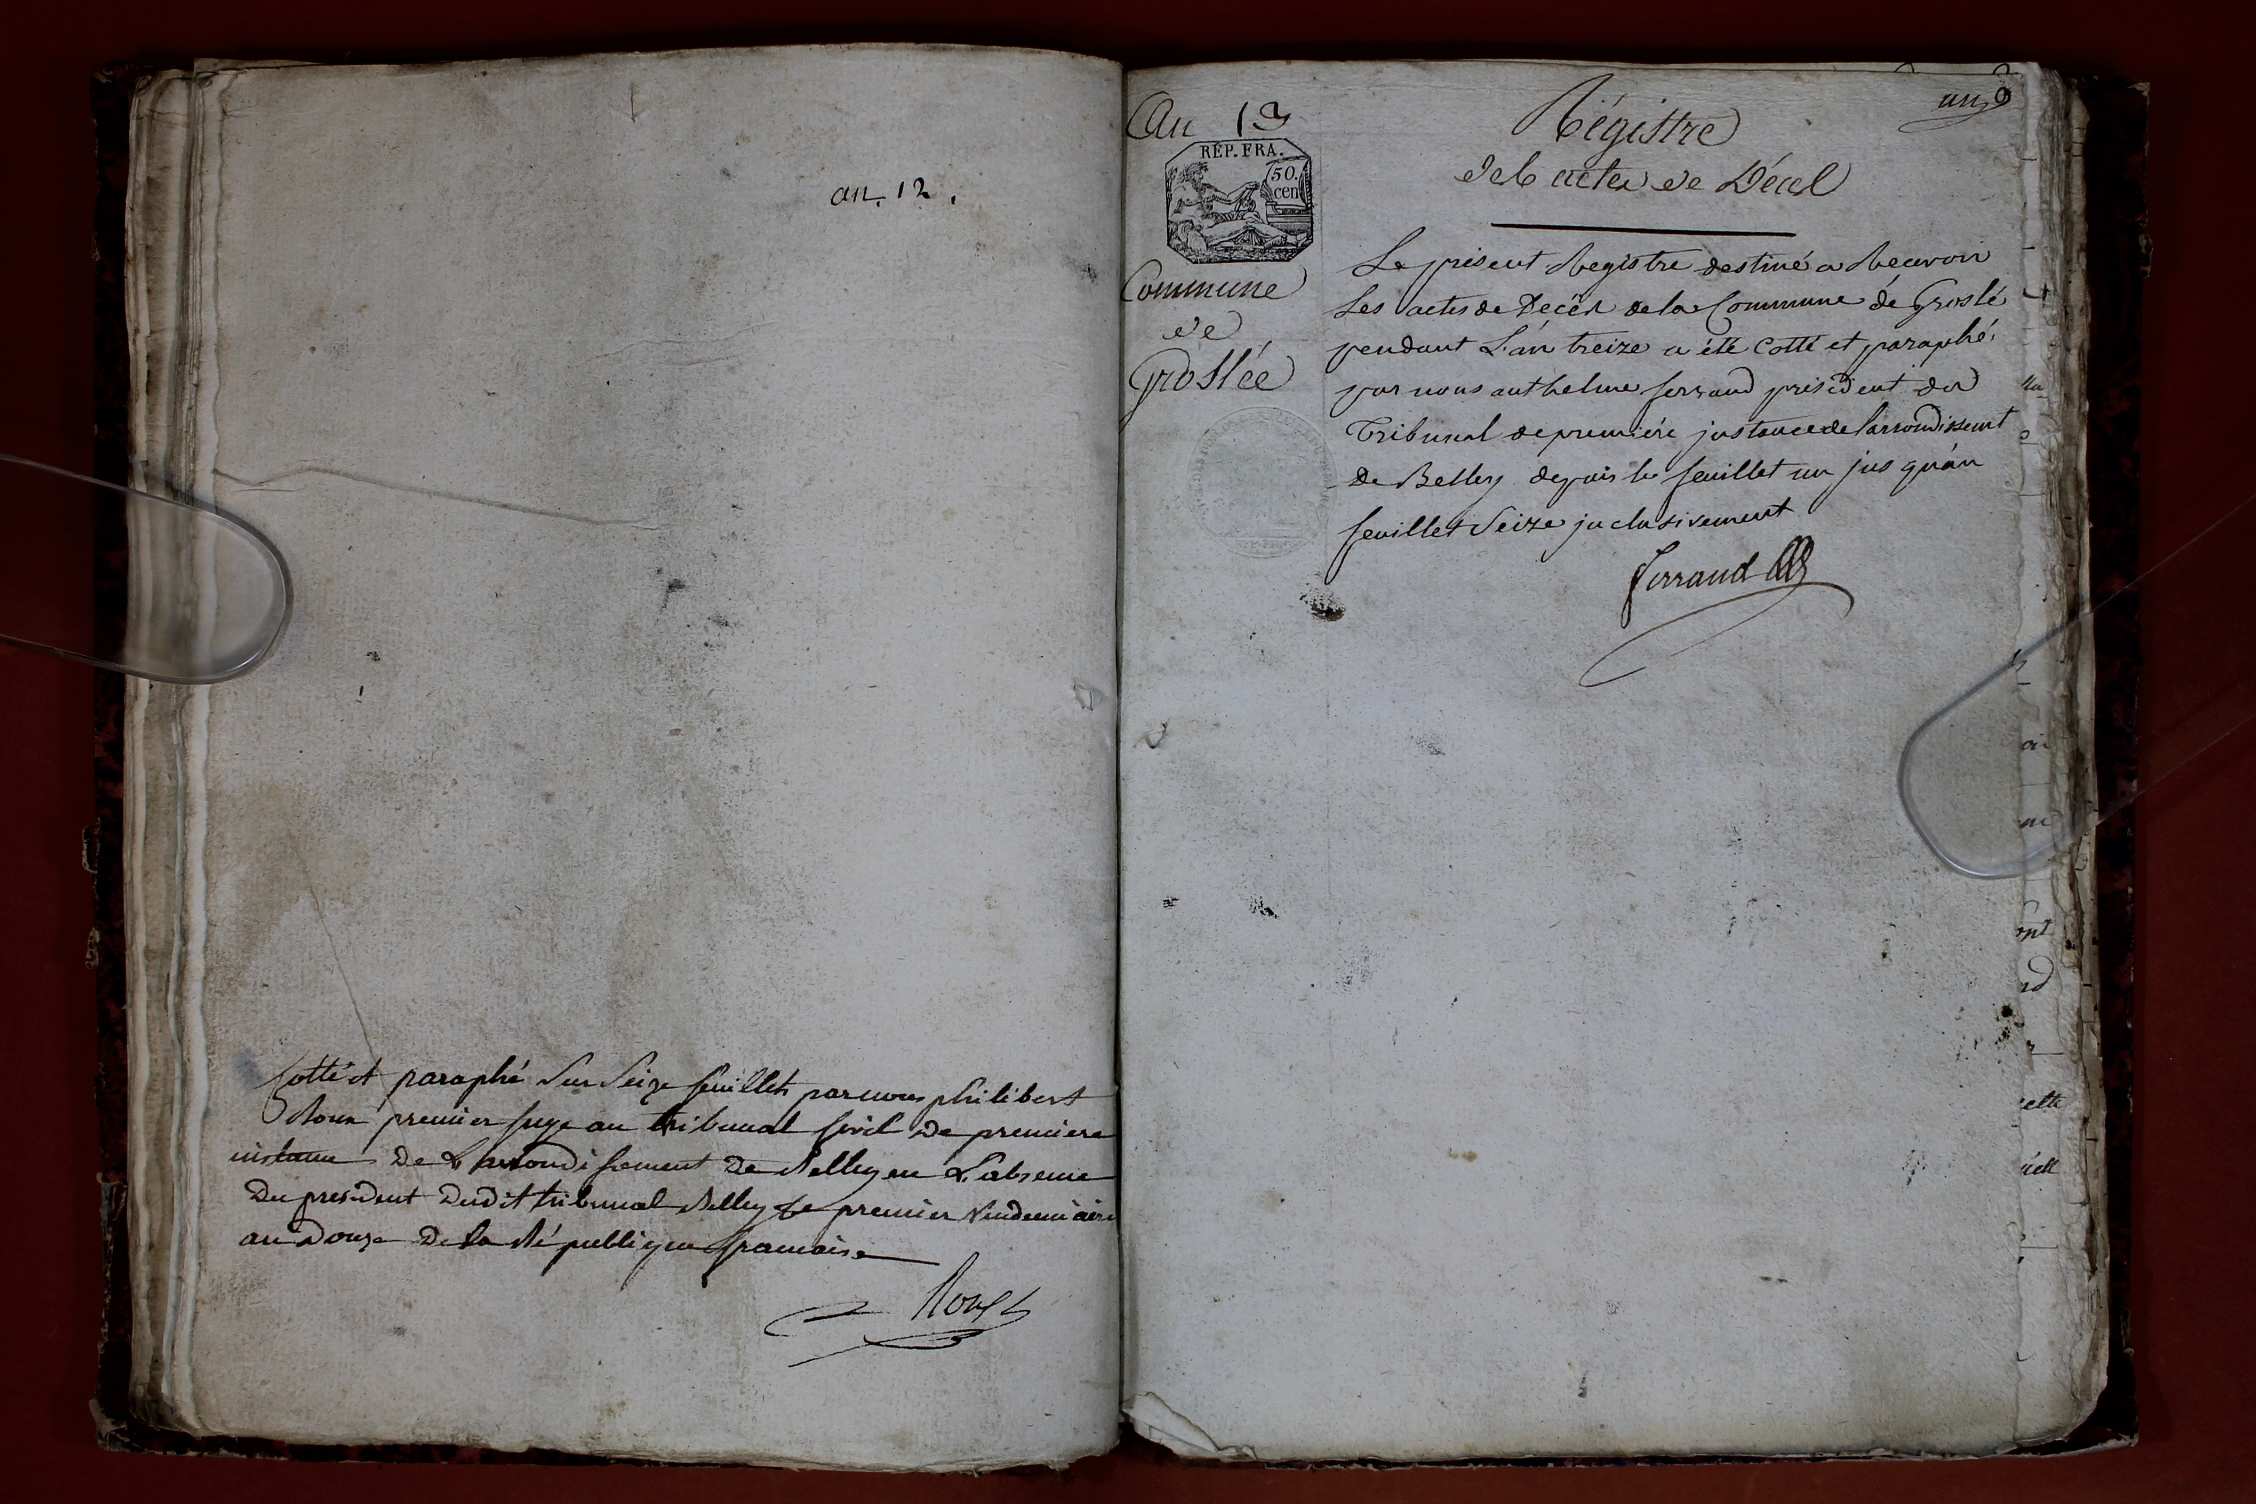 an. 12.
Cotté et paraphé sur Seize feuillets par nous philibert
Roux premier juge au tribunal Civil De premiere
instance De L'arrondissement De Belley en L'absence
Du president Dudit tribunal Belley Le premier Vendemiaire
an Douze De la République francaise
Roux
An 13
REP. FRA.
50.
cen
Commune
de
Groslée
un
Régistre
des actes de Décès
Le présent Registre destiné a Recevoir
Les actes de Decès de la Commune de Groslé
pendant L'an treize a été Cotté et paraphé
par nous anthelme ferrand président du
Tribunal de première instance de l'arrondissemt
de Belley depuis le feuillet un jus qu'au
feuillet Seize inclusivement
ferrand